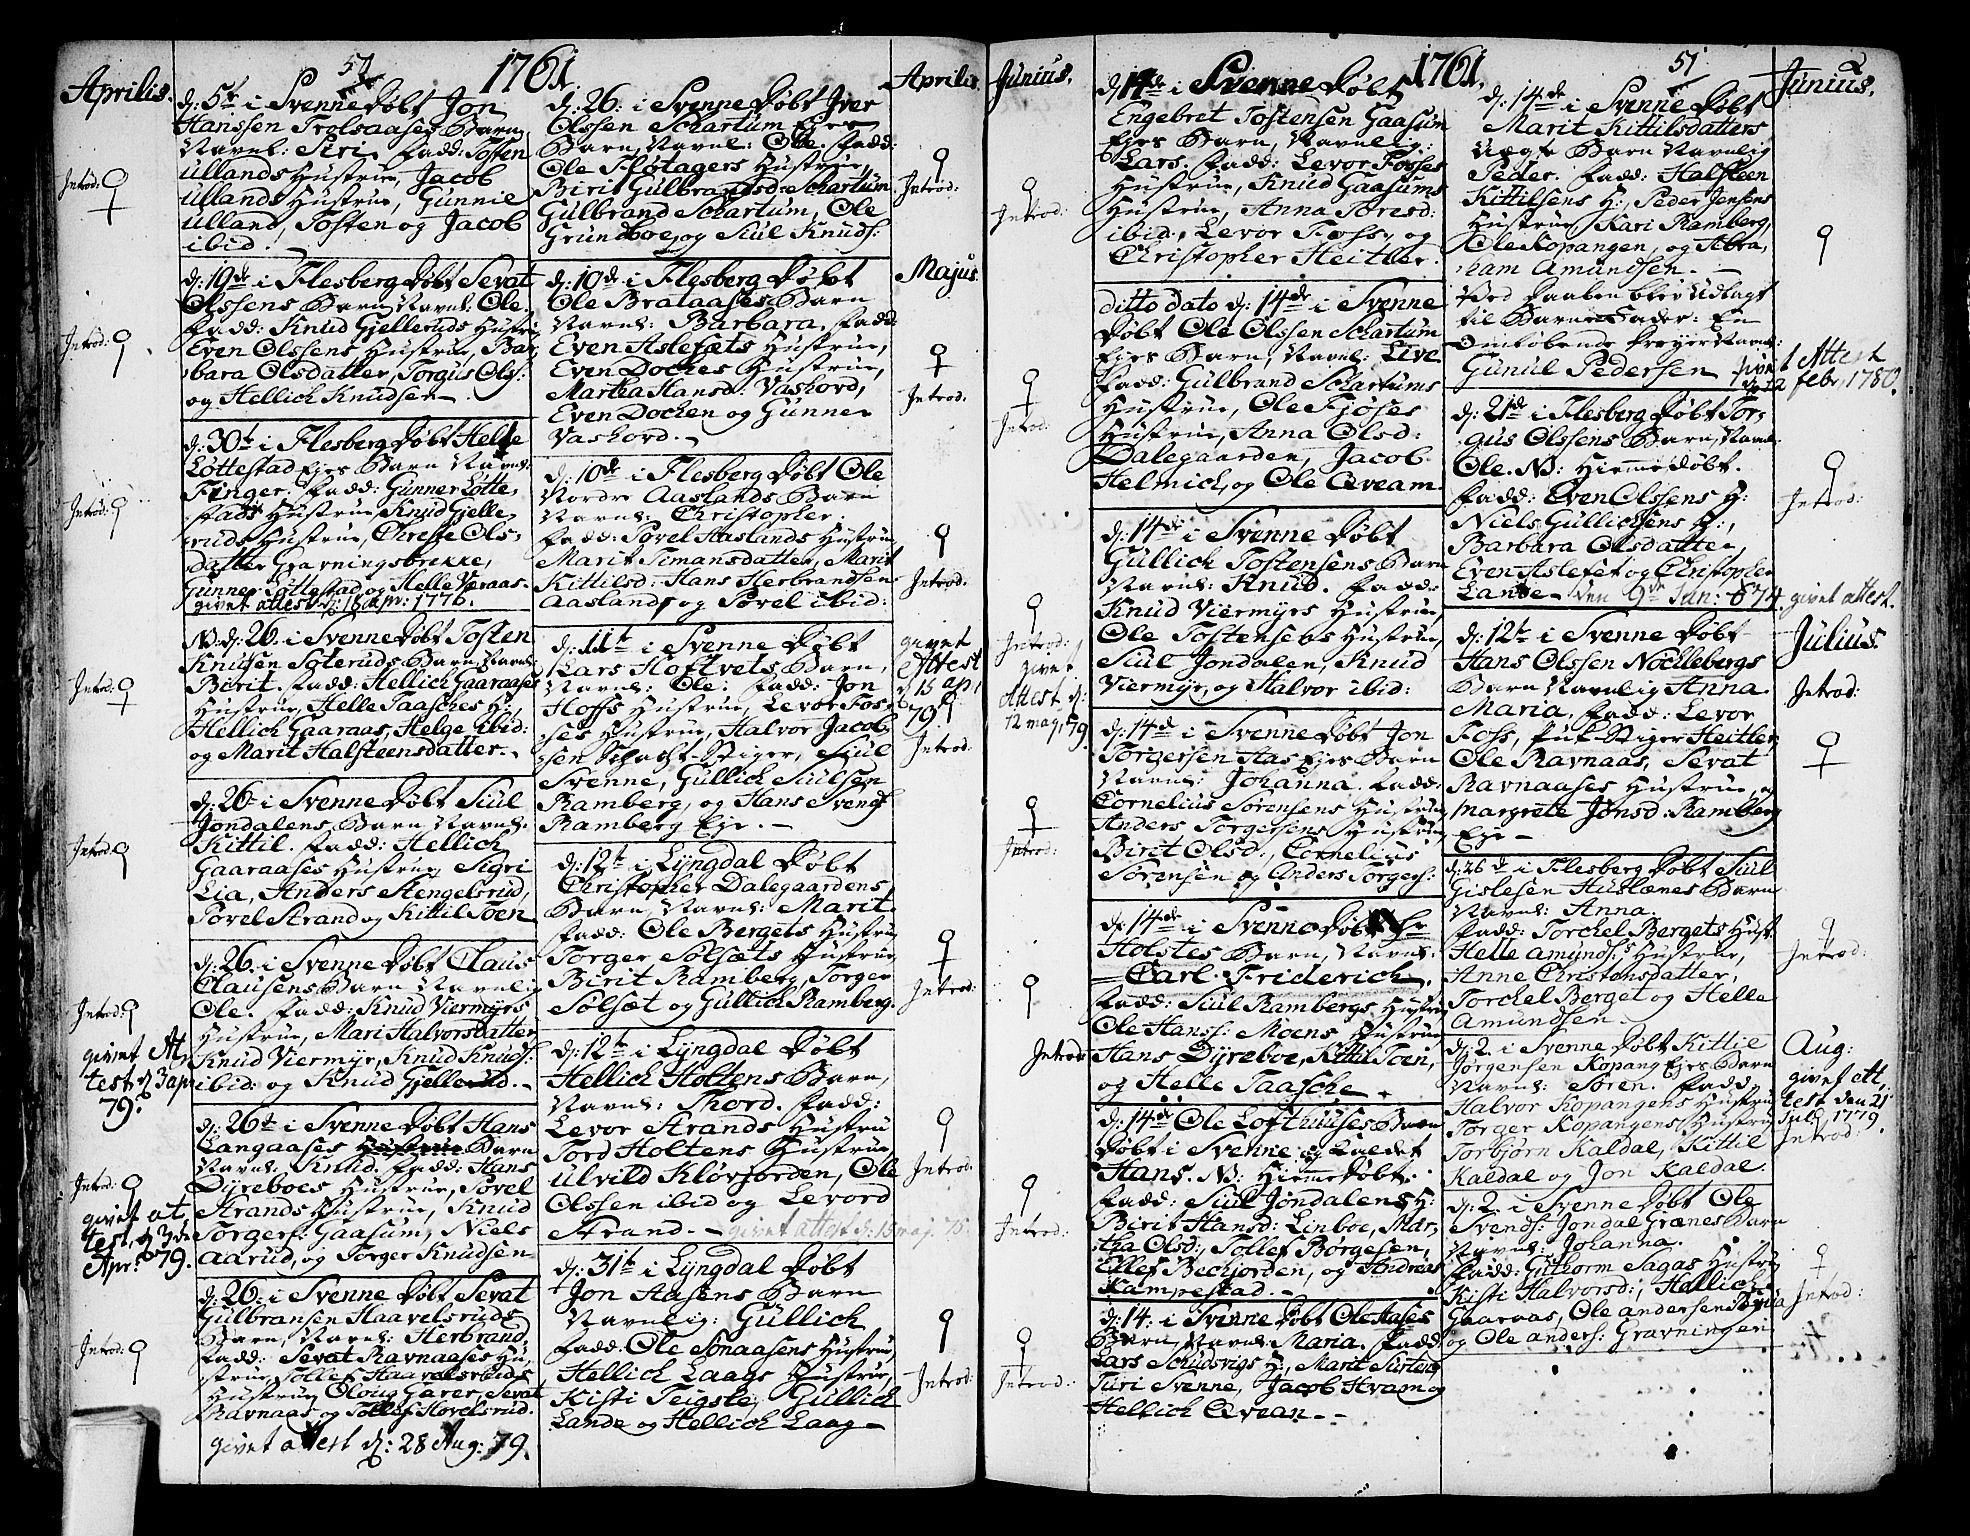 Aprilis.
57
1761
Aprilis
d: 5te i Svenne Døbt Jon
Hanssen Trolsaases Barn
Navnl: Siri. Fadd: Tosten
Ullands Hustrue, Jacob
Ullands Hustrue, Gunnie
Ulland, Tosten og Jacob
ibid.
Introd:
d: 19de i Flesberg Døbt Sevat
Olssens Barn Navnl: Ole.
Fadd: Knud Gjelleruds Hustru
Even Olssens Hustrue, Bar,
bara Olsdatter, Torgus Ols:
og Hellich Knudsen.
Introd:
d: 30t i Flesberg Døbt Helle
Løttestad Ejes Barn Navnl:
Finger. Fadd: Gunner Løtte,
stads Hustrue, Knud Gjelle,
ruds Hustrue, Chreste Ols,
datter Gravningsbrekke,
Gunner Løttestad og Helle Væraas.
givet attest d: 16 apr: 1776.
Introd:
N. d: 26. i Svenne Døbt Tosten
Knudsen Soteruds Barn Navnl:
Birit. Fadd: Hellich Gaaraases
Hustrue, Helle Taasches H:,
Hellich Gaaraas, Helge ibid:
og Marit Halsteensdatter.
Introd:
d: 26 i Svenne Døbt Siul
Jondalens Barn Navnl:
Kittil. Fadd: Hellich
Gaaraases Hustrue, Sigri
Lia, Anders Stengelsrud,
Povel Strand og Kittil Toen
Introd:
d: 26. i Svenne Døbt Claus
Clausens Barn Navnlig
Ole. Fadd: Knud Viermyrs
Hustrue, Mari Halvorsdatter
Knud Viermyr, Knud Knuds:
ibid: og Knud Gjellerud.
Introd:
givet At,
test d 3 apr
79.
d: 26t i Svenne Døbt Hans
Langaases Hustrue Barn
Navnl: Knud. Fadd: Hans
Dyreboes Hustrue, Povel
Strands Hustrue, Knud
Torgers: Gaasum, Niels
Aarud, og Torger Knudsen
Introd:
givet at
test, d 3de
Apr: 79.
d: 26. i Svenne Døbt Sevat
Gulbransen Haavelsruds
Barn, Navnl: Herbrand,
Fadd: Sevat Ravnaases Hu,
strue, Tollef Haavelsruds
Hustrue, Oloug Garer, Sevat
Ravnaas og Tollef Hovelsrud.
givet attest d: 28 Aug: 79.
Introd:
d: 26: i Svenne Døbt Iver
Olssen Schartum Ejes
Barn, Navnl: Ole. Fadd:
Ole Fløtagers Hustrue,
Birit Gulbrandsdr Schartum
Gulbrand Schartum, Ole
Grundboe, og Siul Knuds:
Introd:
Majus
d: 10de i Flesberg Døbt
Ole Brataases Barn
Navnl: Barbara. Fadd
Even Aslefæts Hustrue,
Even Doches Hustrue,
Martha Hansd: Vashord,
Even Dochen og Gunner
Vashord.
Introd.
d: 10de i Flesberg Døbt Ole
Nordre Aaslands Barn
Navnl: Christopher:
Fadd: Povel Aaslands Hustrue
Marit Timansdatter, Marit
Kittilsd: Hans Herbrandsen
Aasland, og Povel ibid:
Introd:
d: 11te i Svenne Døbt
Lars Hoftvets Barn,
Navnl: Ole: Fadd: Jon
Hoffs Hustrue, Levor Fos,
ses Hustrue, Halvor Jacob,
sen Schacht-Stiger, Siul
Svenne, Gullich Siulsen
Ramberg, og Hans Svends
Ramberg Eje.
givet
Attest
d 15 apr
79
Introd:
d: 12te i Lyngdal Døbt
Christopher Dalegaardens
Barn, Navnl: Marit.
Fadd: Ole Bergets Hustrue
Torger Solsæts Hustrue
Birit Ramberg, Torger
Solsæt og Gullich Ramberg.
Introd:
d: 12te i Lyngdal Døbt
Hellich Holtens Barn,
Navnl: Thord. Fadd:
Levor Strands Hustru
Tord Holtens Hustrue,
Ulvild Kløvforden, Ole
Olssen ibid og Levord
Strand. givet attest d: 15 maj 75.
Introd:
d: 31te i Lyngdal Døbt
Jon Aasens Barn
Navnlig: Gullich
Fadd: Ole Sonaasens Hustrue,
Hellich Laags Hustrue,
Kisti Teigsle, Gullich
Lande og Hellich Laag
Introd:
Junius.
1761.
51
Junius.
d: 14de i Svenne Døbt
Engebret Tostensen Gaasum
Ejes Barn, Navnlig:
Lars. Fadd: Levor Fosses
Hustrue, Knud Gaasums
Hustrue, Anna Toresd:
ibid, Levor Foss, og
Christopher Heitler.
Introd:
ditto dato d: 14de i Svenne
Døbt Ole Olssen Schartum
Ejes Barn, Navnl: Live
Fadd: Gulbrand Schartums
Hustrue, Ole Fjøses
Hustrue, Anna Olsd:
Dalegaarden, Jacob
Helmich, og Ole Qveam.
Introd:
d: 14de i Svenne Døbt
Gullich Tostensens Barn
Navnl: Knud. Fadd:
Knud Viermyrs Hustrue,
Ole Tostensens Hustrue,
Siul Jondalen, Knud
Viermyr, og Halvor ibid:
Introd:
givet
Attest d:
12 maj 79.
d: 14de i Svenne Døbt Jon
Torgersen Aas Ejes Barn
Navnl: Johanna. Fadd:
Cornelius Sørensens Hustrue,
Anders Torgersens Hustrue,
Birit Olsd:, Cornelius
Sørensen og Anders Torgers:
Introd:
d: 14de i Svenne Døbt Hr
Holstes Barn, Navnl:
Carl Friderich,
Fadd: Siul Rambergs Hustrue
Ole Hanss: Moens Hustrue
Hans Dyreboe, Kittil Toen,
og Helle Taasche.
Introd:
d: 14de Ole Lofthuuses Barn
Døbt i Svenne og Kaldet
Hans. N: Hjemmedøbt.
Fadd: Siul Jondalens H:
Birit Hansd: Linboe, Mar,
tha Olsd:, Tollef Børgesen,
Ellef Bechjorden, og Andreas
Kampestad.
Introd:
d: 14. i Svenne Døbt Ole Aases
Barn, Navnl: Maria. Fadd:
Lars Schudsvigs H:, Marit Surten,
Turi Svenne, Jacob Hvam og
Hellich Qvean.
Introd:
d: 14de i Svenne Døbt
Marit Kittilsdatters
Uægte Barn Navnlig
Peder. Fadd: Halsteen
Kittilsens H:, Peder Jensens
Hustrue, Kari Ramberg,
Ole Kopangen, og Abra,
ham Amundsen.
Ved Daaben blev udlagt
til Barnefader: En
Omløbende Dreyer Navnl:
Gunul Pedersen
givet Attest
d 12 febr, 1780.
d: 21de i Flesberg Døbt Tor,
gus Olssens Barn, Navnl:
Ole. N: Hiemmedøbt.
Fadd: Even Olssens H:
Niels Gullichsens H:,
Barbara Olsdatter,
Even Aslefet og Christopher
Lande. den 9de Jan: 874 givet attest.
Introd:
Julius.
d: 12te i Svenne Døbt
Hans Olssen Noellebergs
Barn Navnlig Anna
Maria, Fadd: Levor
Foss, Puk-Stiger Heitler,
Ole Ravnaas, Sevat
Ravnaases Hustrue, og
Margrete Jonsd: Ramberg
Eje
Introd:
d: 26de i Flesberg Døbt Siul
Gislesen Huslænes Barn
Navnl: Anna.
Fadd: Torchel Bergets Hust.
Helle Amunds: Hustrue,
Anne Christensdatter,
Torchel Berget og Helle
Amundsen.
Introd:
Aug:
d: 2. i Svenne Døbt Kittil
Jørgensen Kopang Ejes Barn
Navnl: Søren. Fadd:
Halvor Kopangens Hustrue
Torger Kopangens Hustru
Torbjørn Kaldal, Kittil
Kaldal og Jon Kaldal.
givet At,
test den 21
Jul: 1779.
Introd:
d: 2. i Svenne Døbt Ole
Svends: Jondal Grænes Barn
Navnl: Johanna.
Fadd: Guthorm Sagas Hustru
Kisti Halvorsd:, Hellich
Gaaraas, Ole Andersen
og Ole Anders: Gravningen
Introd: